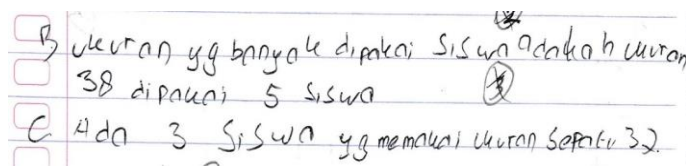 B, ukuran yg banyak dipakai siswa adalah ukuran
38 dipakai 5 siswa
C Ada 3 siswa yg memakai ukuran sepatu 32.